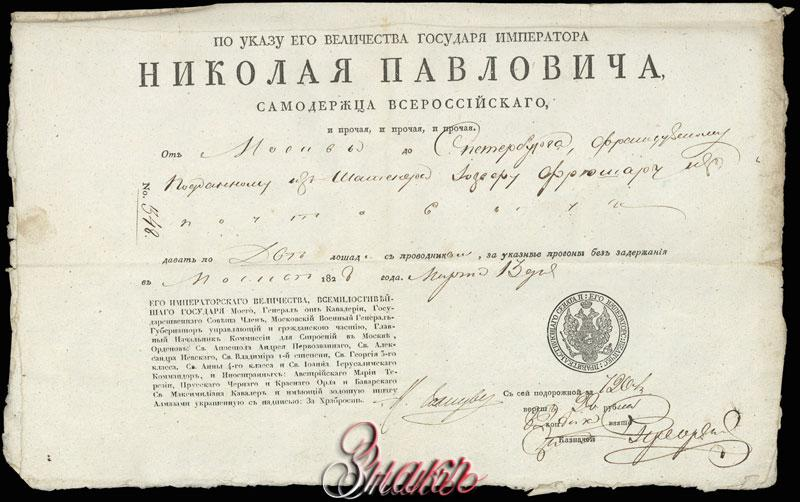 ПО УКАЗУ ЕГО ВЕЛИЧЕСТВА ГОСУДАРЯ ИМПЕРАТОРА
НИКОЛАЯ ПАВЛОВИЧА,
САМОДЕРЖЦА ВСЕРОССІЙСКАГО,
и прочая, и прочая, и прочая.
Отъ Москвы до Спетербурга, Французскому
Подданному
No. 548.
давать по Двѣ лошади съ проводникомъ, за указные прогоны безъ задержанія
въ Москвѣ 1828 года. Марта 13 дня
ЕГО ИМПЕРАТОРСКАГО ВЕЛИЧЕСТВА, ВСЕМИЛОСТИВѢЙ-
ШАГО ГОСУДАРЯ Моего, Генералъ отъ Кавалеріи, Госу-
дарственнаго Совѣта Членъ, Московскій Военный Генералъ-
Губернаторъ управляющій и гражданскою частію, Глав-
ный Начальникъ Коммиссіи для Строеній въ Москвѣ,
Орденовъ: Св. Апостола Андрея Первозваннаго, Св. Алек-
сандра Невскаго, Св. Владиміра 1-й степени, Св. Георгія 3-го
класса, Св. Анны 1-го класса и Св. Іоанна Іерусалимскаго
Командоръ, и Иностранныхъ: Австрійскаго Маріи Те-
резіи, Прусскаго Чернаго и Краснаго Орла и Баварскаго
Св. Максимиліана Кавалеръ и имѣющій золотую шпагу
Алмазами украшенную съ надписью: За Храбрость.
Съ сей подорожной за 726
верстъ рубли
коп взято
Казначей
Знакъ